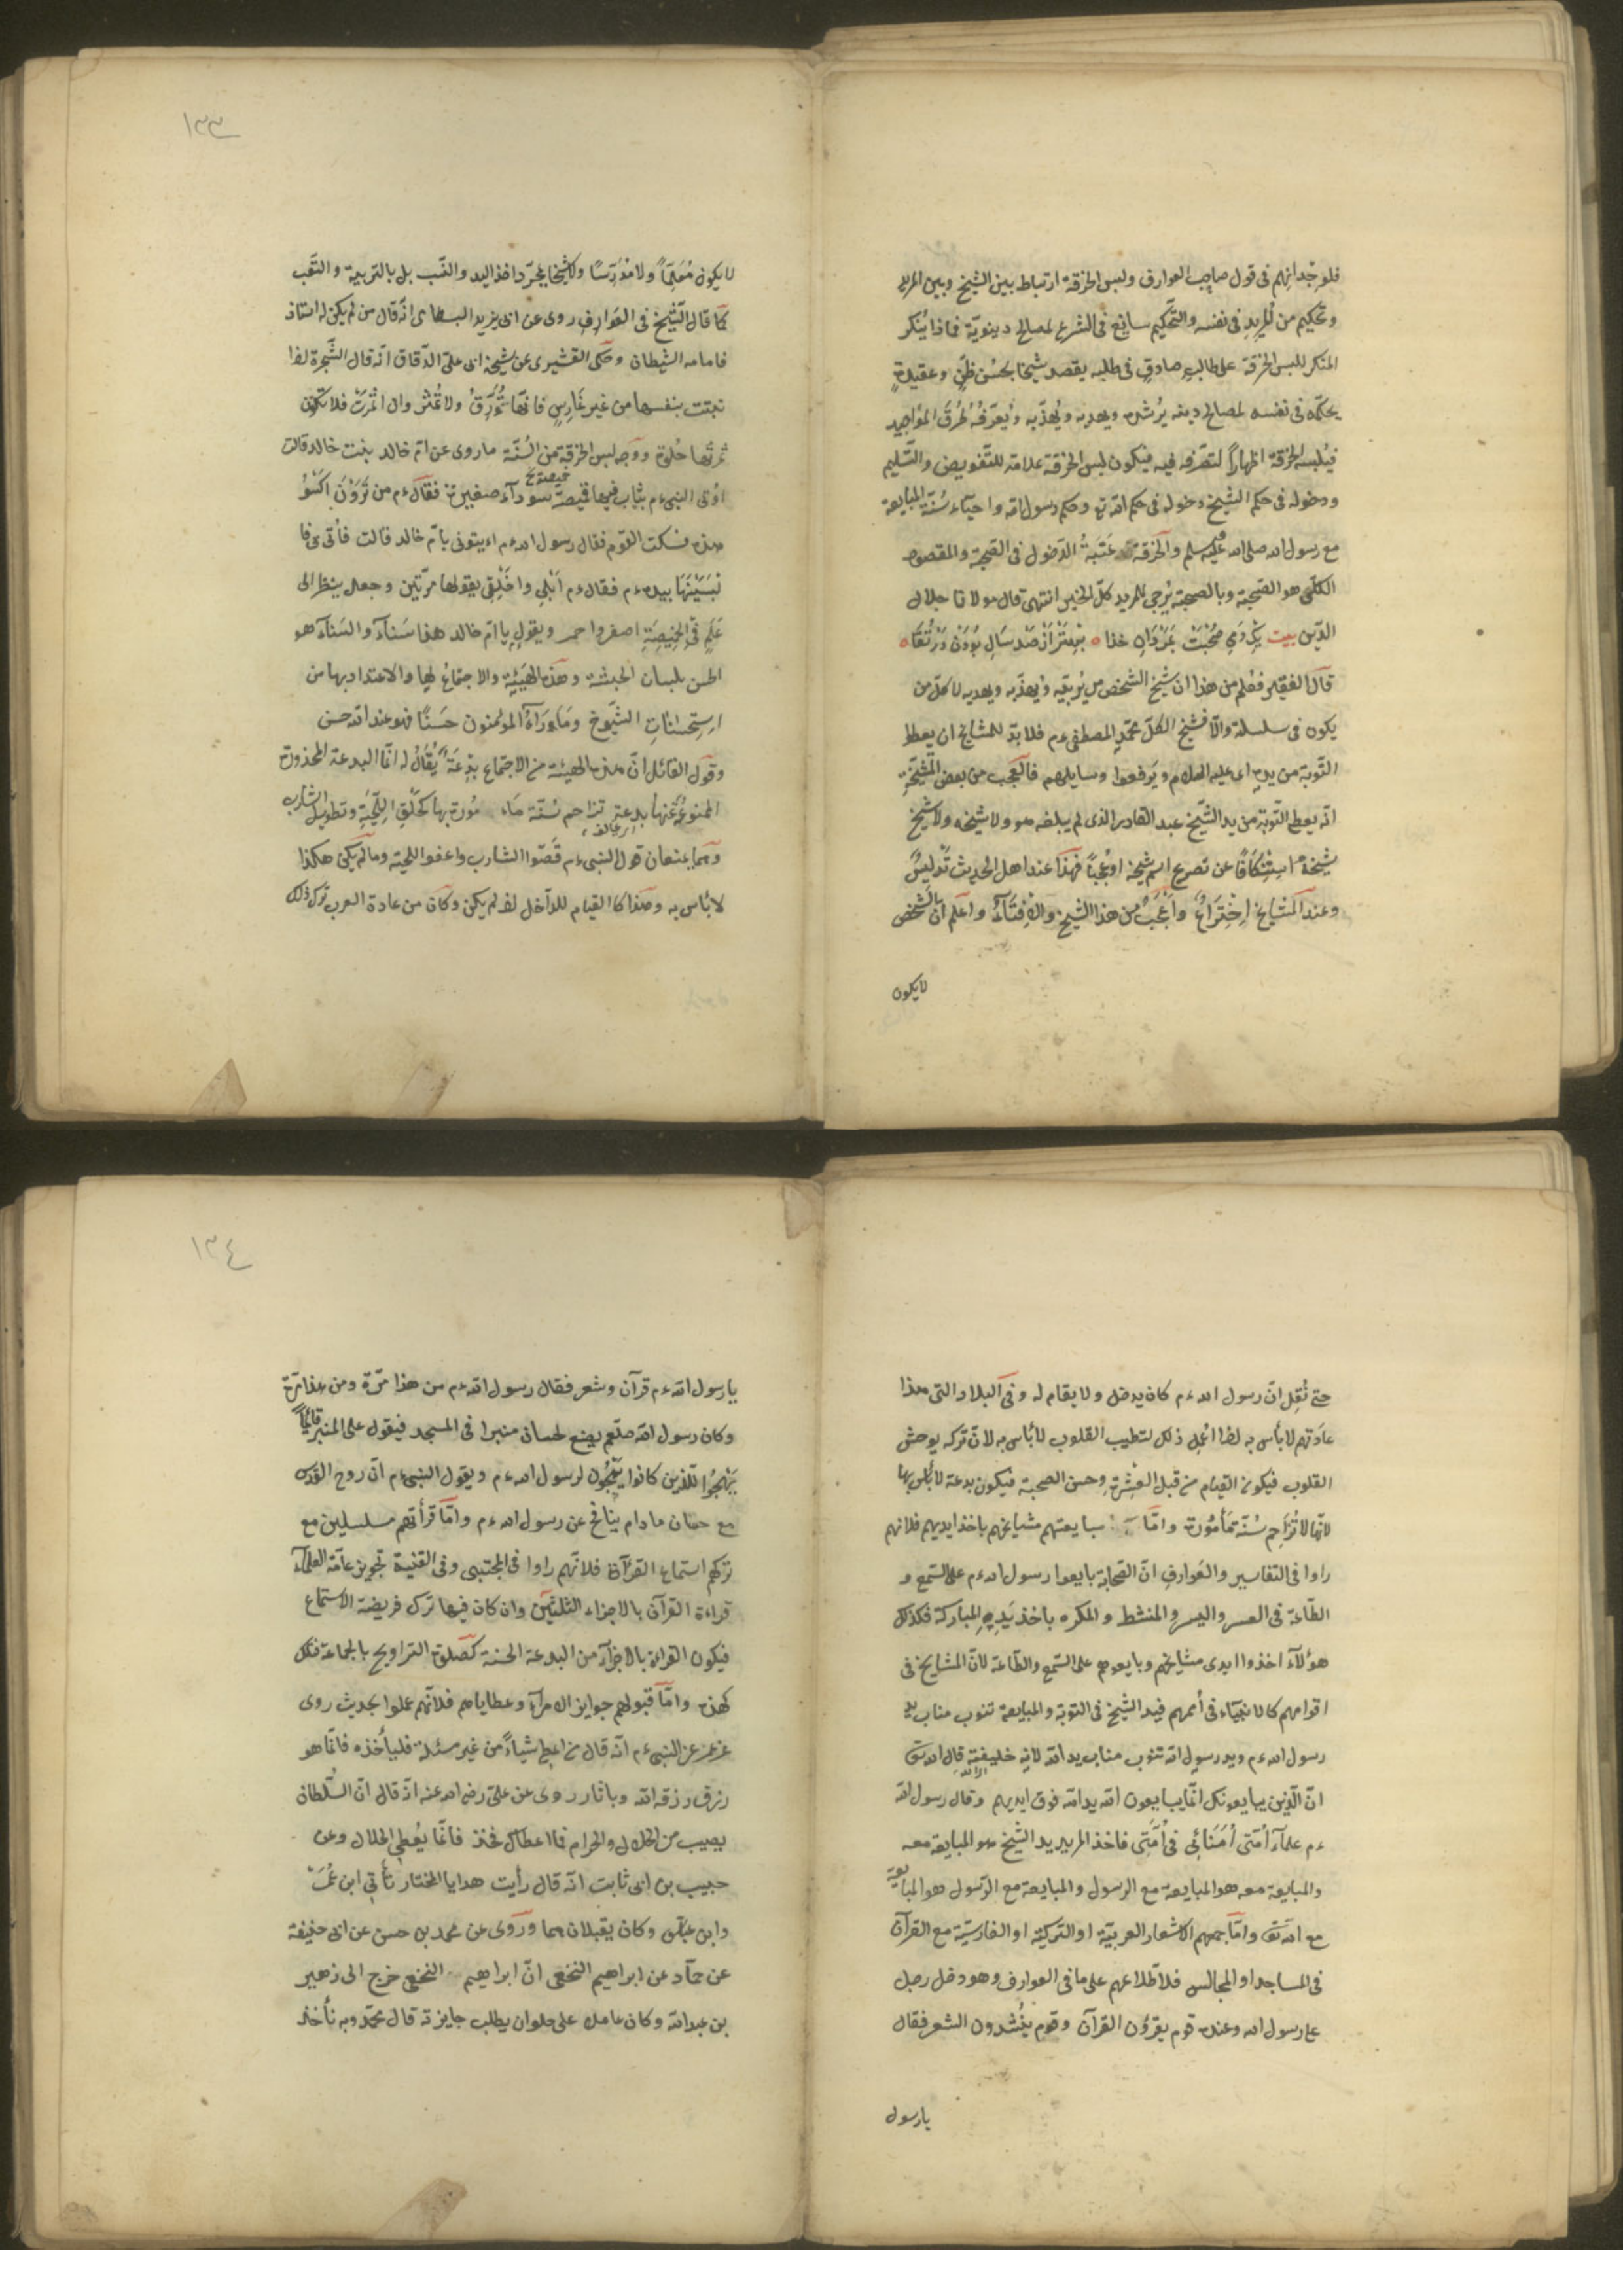 فلوجدانهم فى قول صاحب العوارف ولبس الخرقة ارتباط بين الشيخ وبين المريد
وتحكيم من المريد فى نفسه والتَّحكيم سائغ فى الشرع لمصالح دينويّة فماذا يُنكر
المنكر للبس الخرقة على طالبٍ صادقٍ فى طلبه يقصد شيخًا بحُسْن ظنٍّ وعقيدةٍ
يحكّمه فى نفسه لمصالح دينه يُرْشده ويهديه ويُهذّبه ويُعرّفُهُ طُرُقَ المَوَاجيد
فيُلبسه الخرقة اظهاراً لتصرّفه فيه فيكون لبس الخرقة علامة للتّفويض والتّسليم
ودخوله فى حكم الشيخ دخوله فى حكم الله تع وحكم رسول الله واحياء سُنّة المبايعة
مع رسول الله صلى الله عليه وسلم والخرقة عَتَبةُ الدّخول فى الصّحبة والمقصود
الكلّىّ هو الصّحبة وبالصحبة يُرجى للمريد كلّ الخير انتهى قال مولانا جلال
الدّين بيت يَكِ دَمِ صُحْبَتْ بَمَرْدَانِ خُدَا ه بِهْتَرْ اَزْ صَدْ سَالِ بُودَنْ دَرْ تُقَا ه
قال الفقير فعُلم من هذا ان شيخ الشخص من يُربّيه ويُهذّبه ويهديه لا كلّ من
يكون فى سلسلة والّا فشيخ الكلّ محمّدٍ المصطفى ءم فلا بدّ للمشايخ ان يعطوا
التّوبة من يده اى عليه السلام ويَرفعوا وسايلهم فالعجب من بعض المشيخة
انّه يعطى التّوبة من يد الشّيخ عبد القادر الذى لم يبلغه هو ولا شيخه ولا شيخ
شيخه اسْتِنْكَافًا عن تصريح اسم شيخه او عُجْبًا فهذا عند اهل الحديث تَدْليسٌ
وعند المشايخ اخْتِرَاعٌ وَأَعْجَبُ من هذا الشيخ والافْتِتَآءُ واعلم انّ الشخص
لايكون
١٣٣
لا يكون مُعَلِّمًا ولا مُدَرِّسًا ولا شيخا بمجرّد اخذ اليد والنّسب بل بالتربية والتّعب
كما قال الشّيخ فى العَوَارِف روى عن ابى يزيد البسطامى انّه قال من لم يكن له استاذ
فامامه الشيطان وحكى القشيرى عن شيخه ابى علىّ الدّقاق انّه قال الشّجرة اذا
نبتت بنفسها من غير غَارِسٍ فانّها تُوَرِّقُ ولا تُثْمر وان اثمرت فلا تكون
ثمرتها حُلْوة ووجه لبس الخرقة من السُّنّة ما روى عن امّ خالد بنت خالد قالت
اوتى النبى ءم بثياب فيها قميصة سودآء صغيرة فقال ءم من تَرَوْنَ اكْسُوُ
خميصة
هذه فسكت القوم فقال رسول الله ءم ايتونى بامّ خالد قالت فأتى بى فا
لْبَسَنيها بيده ءم فقال ءم أَبْلِى واخْلِقى يقولها مرّتين وجعل ينظر الى
عَلَمٍ فى الخَمِيصَةِ اصفر واحمر ويقول يا امّ خالد هذا سَنَآء والسَنآء هو
الحسن بلسان الحبشة وهذه الهَيْئَةِ والاجتماعُ لها والاعتداد بها من
اسْتِحْسَانَاتِ الشُّيُوخ وَمَا رَآهُ المؤمنون حَسَنًا فهو عند الله حسن
وقول القائل انّ هذه الهيئة من الاجتماع بِدْعَة يُقَالُ له انّما البدعة المحذورة
الممنوعُ عنها بدعة تزاحم سُنّة مَأ مُورة بها كحلْقِ اللّحْيَةِ وتطويل الشارب
اى يخالف
وهما يمنعان قول النبى ءم قَصّوا الشارب واعفوا اللحية وما لم يكن هكذا
لا بأس به وهكذا كا القيام للدّاخل اذ لم يكن وكان من عادة العرب ترك ذلك
حتى نُقِل انّ رسول الله ءم كان يدخل ولا يقام له وفى البلاد التى هذا
عادتهم لا بأس به لهذا افعل ذلك لتطيب القلوب لا بأس به لانّ تركه يوحش
القلوب فيكون القيام من قبل العِشْرَة وحسن الصحبة فيكون بدعة لا بأس بها
لانّها لا تُزَاحِم سُنّة مَأمُورة وامّا مبايعتهم مشايخهم باخذ ايديهم فلانهم
راوا فى التفاسير والعَوارف انّ الصّحابة بايعوا رسول الله ءم على السّمع و
الطّاعة فى العسر واليسر والمنشط والمكره باخذ يَدِهِ المباركة فكذلك
هؤلآء اخذوا ايدى مشايخهم وبايعوهم على السّمع والطّاعة لانّ المشايخ فى
اقوامهم كالانبيآء فى أممهم فيد الشّيخ فى التّوبة والمبايعة تنوب مناب يد
رسول الله ءم ويد رسول الله تنوب مناب يد الله لانه خليفته قال الله تع
انّ الّذين يبايعونك انّما يبايعون الله يد الله فوق ايديهم وقال رسول الله
ءم علمآء أمّتى أمَنَائِى فى أُمّتى فاخذ المريد يد الشّيخ هو المبايعة معه
والمبايعة معه هو المبايعة مع الرسول والمبايعة مع الرّسول هو المبايعة
مع الله تع وامّا جمعهم الاشعار العربيّة او التركيّة او الفارسيّة مع القرآن
فى المساجد او المجالس فلاطّلاعهم على ما فى العوارف وهو دخل رجل
على رسول الله وعنده قوم يقرؤن القرآن وقوم يُنْشدون الشعر فقال
يارسول
١٣٤
يارسول الله ءم قرآن وشعر فقال رسول الله ءم من هذا مّرة ومن هذا مّرة
وكان رسول الله صلعم يضع لحسان منبرا فى المسجد فيقول على المنبر قائماً
يَهْجُوا الّذين كانوا يَهْجُون لرسول الله ءم ويقول النبى ءم انّ روح القدس
مع حسّان مادام ينافح عن رسول الله ءم وامّا قرأتهم مسلسلين مع
تركهم استماع القرآن فلانّهم راوا فى المجتبى وفى القنية تجويز عامّة العلمآء
قراءة القرآن بالاجزاء الثلثين وان كان فيها ترك فريضة الاستماع
فيكون القراءة بالاجزآء من البدعة الحسنة كصلوة التراويح بالجماعة فكل
كهذه وامّا قبولهم جوايز الامرآء وعطاياهم فلانّهم عملوا بحديث روى
عن عمر عن النبى ءم انّه قال من اعطى شياءً من غير مسئلة فليأخذه فانّما هو
رزق رزقه الله وباثار روى عن علىّ رضى الله عنه انّه قال انّ السُّلطان
يصيب من الحلال والحرام فما اعطاك فخذ فانّما يُعْطى الحلال وعن
حبيب بن ابى ثابت انّه قال رأيت هدايا المختار تأتى ابن عُمَرَ
وابن عبّاس وكان يقبلانهما ورَوى عن محمد بن حسن عن ابى حنيفة
عن حمآد عن ابراهيم النخعى انّ ابراهيم النخعى خرج الى زهير
بن عبد الله وكان عاملا على حلوان يطلب جايزته قال محمّد وبه نأخذ